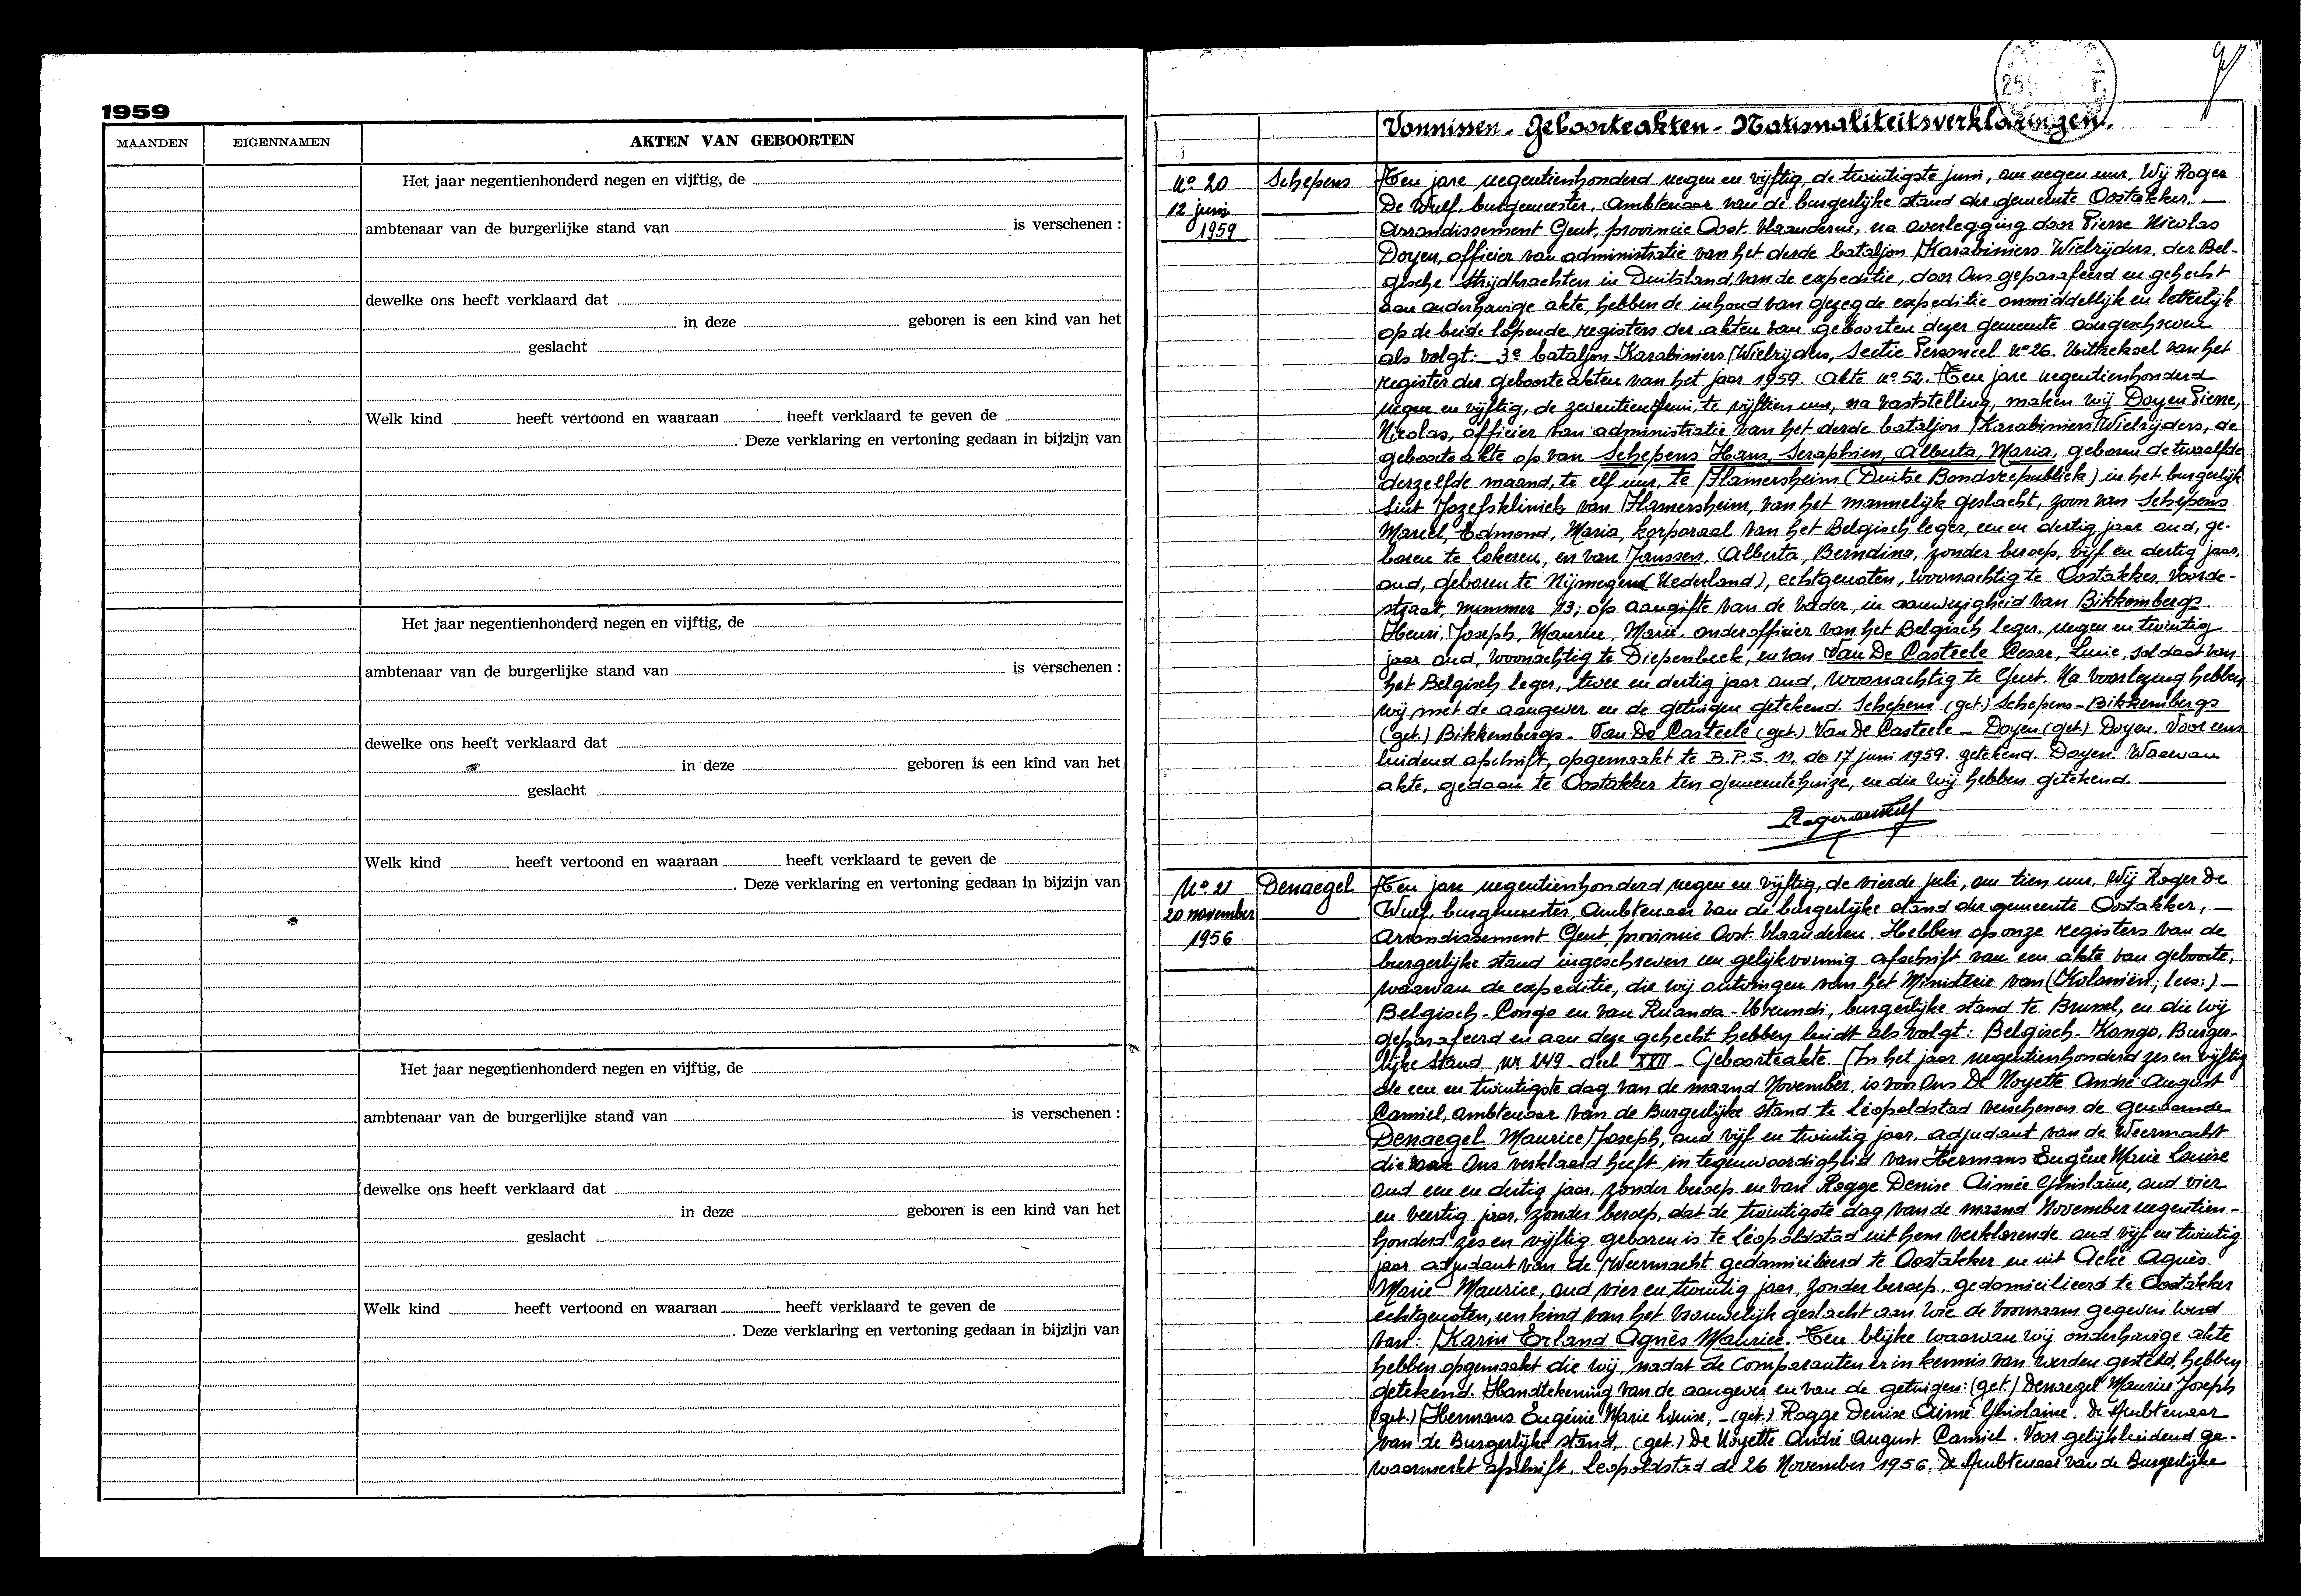 1959
MAANDEN EIGENNAMEN AKTEN VAN GEBOORTEN
Het jaar negentienhonderd negen en vijftig, de
ambtenaar van de burgerlijke stand van is verschenen :
dewelke ons heeft verklaard dat
in deze geboren is een kind van het
geslacht
Welk kind heeft vertoond en waaraan heeft verklaard te geven de
. Deze verklaring en vertoning gedaan in bijzijn van
Het jaar negentienhonderd negen en vijftig, de
ambtenaar van de burgerlijke stand van is verschenen :
dewelke ons heeft verklaard dat
in deze geboren is een kind van het
geslacht
Welk kind heeft vertoond en waaraan heeft verklaard te geven de
. Deze verklaring en vertoning gedaan in bijzijn van
Het jaar negentienhonderd negen en vijftig, de
ambtenaar van de burgerlijke stand van is verschenen :
dewelke ons heeft verklaard dat
in deze geboren is een kind van het
geslacht
Welk kind heeft vertoond en waaraan heeft verklaard te geven de
. Deze verklaring en vertoning gedaan in bijzijn van
25
Vonnissen - Geboorteakten - Nationaliteitsverklaringen.
No 20
12 juni
1959
Schepens
Ten jare negentienhonderd negen en vijftig, de twintigste juni, om negen uur, Wij Roger
De Wulf, burgemeester, Ambtenaar van de burgerlijke stand der gemeente Oostakker, —
Arrondissement Gent, provincie Oost-Vlaanderen, na overlegging door Pierre Nicolas
Doyen, officier van administratie van het derde bataljon Karabiniers Wielrijders, der Bel-
gische Strijdkrachten in Duitsland, van de expeditie, door Ons geparafeerd en gehecht
aan onderhavige akte, hebben de inhoud van gezegde expeditie onmiddellijk en letterlijk
op de beide lopende registers der akten van geboorten dezer gemeente overgeschreven
als volgt: — 3e bataljon Karabiniers Wielrijders, Sectie Personeel no 26. Uittreksel van het
register der geboorteakten van het jaar 1959. Akte no 52. Ten jare negentienhonderd
negen en vijftig, de zeventien juni, te vijftien uur, na vaststelling, maken wij Doyen Pierre,
Nicolas, officier van administratie van het derde bataljon Karabiniers Wielrijders, de
geboorteakte op van Schepens Hans, Seraphien, Alberta, Maria, geboren de twaalfde
derzelfde maand, te elf uur, te Flamersheim (Duitse Bondsrepubliek) in het burgerlijk
Sint Jozefskliniek van Flamersheim, van het mannelijk geslacht, zoon van Schepens
Marcel, Edmond, Maria, korporaal van het Belgisch leger, een en dertig jaar oud, ge-
boren te Lokeren, en van Janssen, Alberta, Berndina, zonder beroep, vijf en dertig jaar,
oud, geboren te Nijmegen (Nederland), echtgenoten, woonachtig te Oostakker, Voorde-
straat, nummer 13; op aangifte van de vader, in aanwezigheid van Bikkembergs.
Henri, Joseph, Maurice, Marie, onderofficier van het Belgisch leger, negen en twintig
jaar oud, woonachtig te Diepenbeek, en van Van De Casteele Cesar, Lucie, soldaat van
het Belgisch leger, twee en dertig jaar oud, woonachtig te Gent. Na voorlezing hebben
wij met de aangever en de getuigen getekend. Schepens (get.) Schepens - Bikkembergs
(get.) Bikkembergs - Van De Casteele (get.) Van De Casteele - Doyen (get.) Doyen. Voor eens
luidend afschrift, opgemaakt te B.P.S. 11, de 17 juni 1959. getekend. Doyen. Waarvan
akte, gedaan te Oostakker ten gemeentehuize, en die wij hebben getekend. —
Roger dewulf
No 21
20 november
1956
Denaegel
Ten jare negentienhonderd negen en vijftig, de vierde juli, om tien uur, Wij Roger De
Wulf, burgemeester, Ambtenaar van de burgerlijke stand der gemeente Oostakker, —
Arrondissement Gent, provincie Oost-Vlaanderen. Hebben op onze registers van de
burgerlijke stand ingeschreven een gelijkvormig afschrift van een akte van geboorte,
waarvan de expeditie, die wij ontvingen van het Ministerie van (Koloniën; lees:) —
Belgisch-Congo en van Ruanda-Urundi, burgerlijke stand te Brussel, en die wij
geparafeerd en aan deze gehecht hebben luidt als volgt: Belgisch-Kongo, Burger-
lijke Stand nr 249 - deel XXII - Geboorteakte. In het jaar negentienhonderd zes en vijftig
de een en twintigste dag van de maand November, is voor Ons De Noyette André August
Camiel, ambtenaar van de Burgerlijke stand te Léopoldstad verschenen de genaamde
Denaegel Maurice Joseph, oud vijf en twintig jaar, adjudant van de Weermacht
die voor Ons verklaard heeft in tegenwoordigheid van Hermans Eugénie Marie Louise
oud een en dertig jaar, zonder beroep en van Rogge Denise Aimée Ghislaine, oud vier
en veertig jaar, zonder beroep, dat de twintigste dag van de maand November negentien-
honderd zes en vijftig geboren is te Léopoldstad uit hem verklarende oud vijf en twintig
jaar adjudant van de Weermacht gedomicilieerd te Oostakker en uit Acke Agnès
Marie - Maurice, oud vier en twintig jaar, zonder beroep, gedomicilieerd te Oostakker
echtgenoten, een kind van het vrouwelijk geslacht aan wie de voornaam gegeven werd
van: Karin Erland Agnès Maurice. Ten blijke waarvan wij onderhavige akte
hebben opgemaakt die wij, nadat de Comparanten er in kennis van werden gesteld, hebben
getekend. Handtekening van de aangever en van de getuigen: (get.) Denaegel Maurice Joseph
(get.) Hermans Eugénie Marie Louise, - (get.) Rogge Denise Aimé Ghislaine. De Ambtenaar
van de Burgerlijke stand, (get.) De Noyette André August Camiel. Voor gelijkluidend ge-
waarmerkt afschrift. Leopoldstad de 26 November 1956. De Ambtenaar van de Burgerlijke